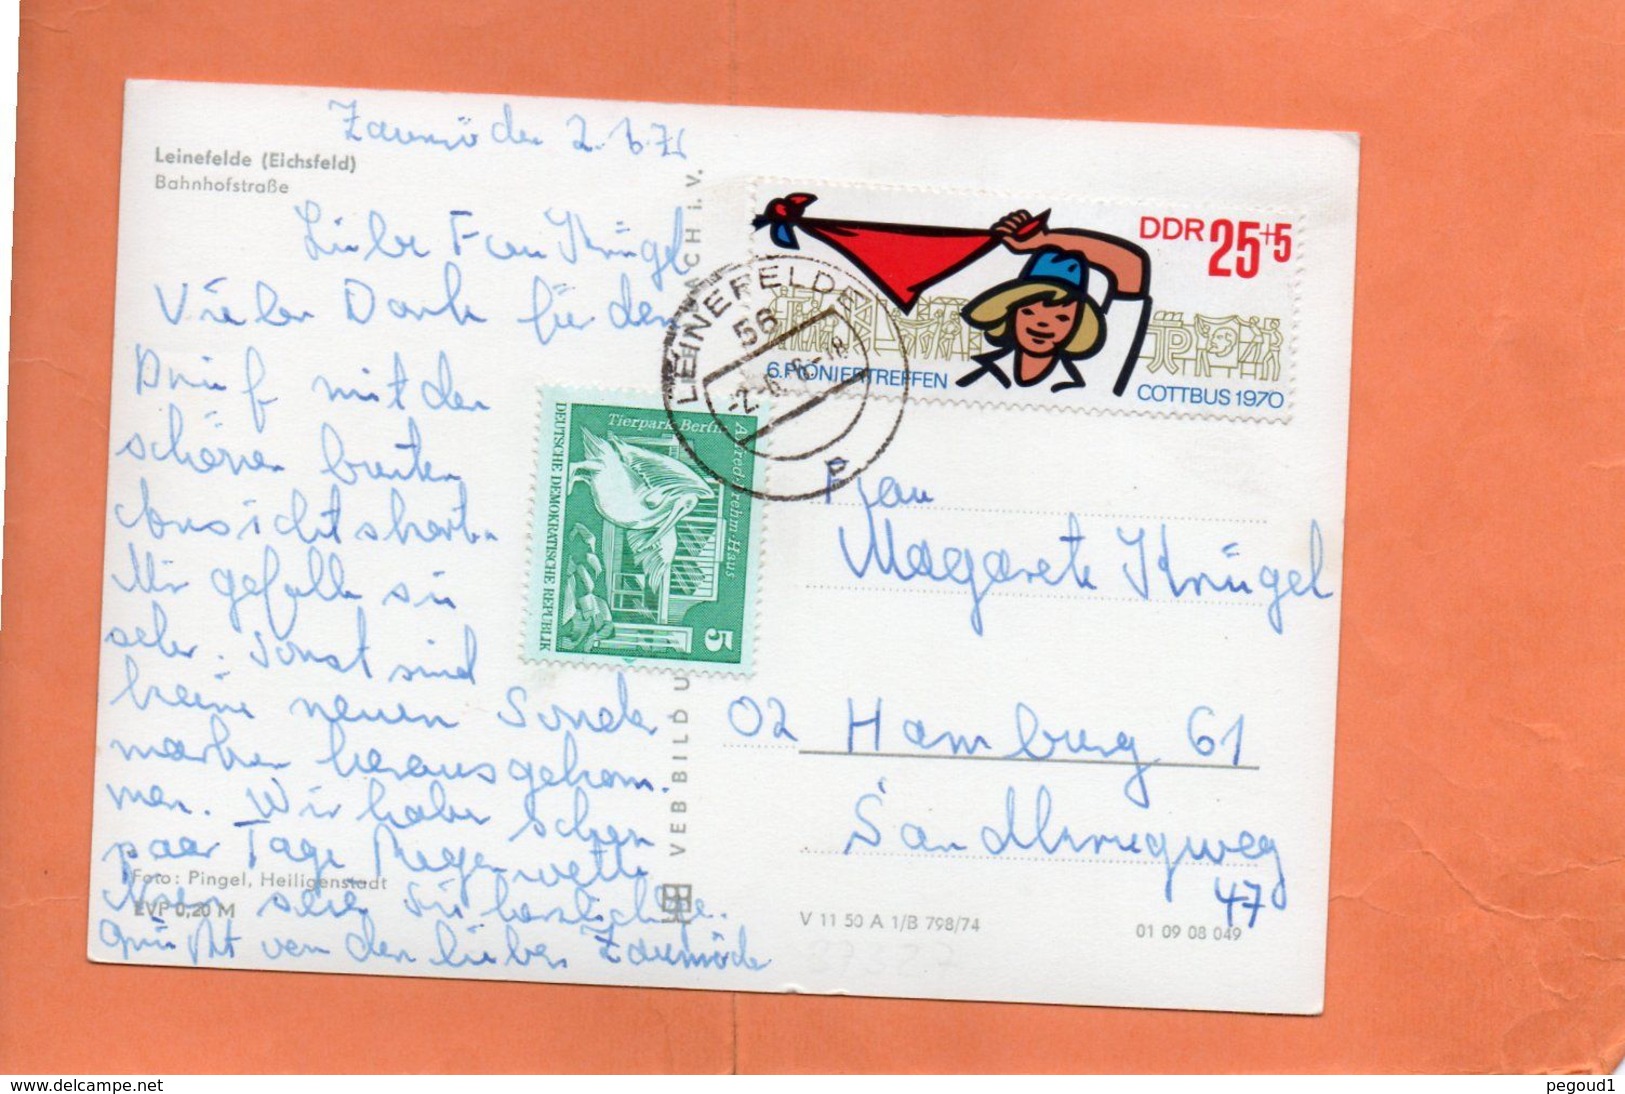 Leinefelde (Eichsfeld)
Bahnhofstraße
Liebe Frau Krügel
Vielen Dank für den
Brief mit den
schönen breiten
Ansichtskarten
Mir gefallen sie
sehr. Sonst sind
keine neuen Sonder
marken herausgekom.
men. Wir haben schon
paar Tage Regenwetter
Nun seien Sie herzlichste.
grüßt von den lieben
Foto: Pingel, Heiligenstadt
EVP 0,20 M
VEB BILD U
ACH i. V.
DDR 25+5
6. PIONIERTREFFEN
COTTBUS 1970
LEINEFELDE
56
Tierpark Berlin
Alfred-Brehm-Haus
DEUTSCHE DEMOKRATISCHE REPUBLIK
5
Frau
Magarete Krügel
02 Hamburg 61
47
V 11 50 A 1/B 798/74
01 09 08 049
www.delcampe.net
pegoud1